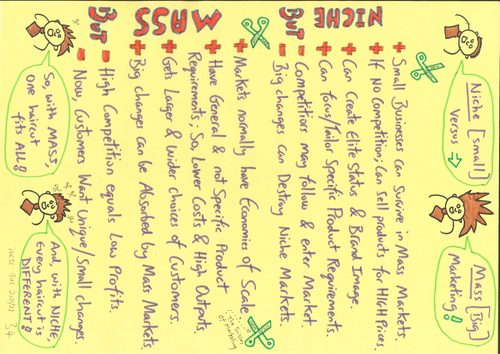 Niche [small]
Versus →
Mass [Big]
Marketing!
NICHE
+ Small Businesses can survive in Mass Markets
+ If No Competition; Can sell products for HIGH Prices.
+ Can Create Elite Status & Brand Image.
+ Can focus/Tailor Specific Product Requirements.
BUT
- Competitors may follow & enter Market.
- Big changes can Destroy Niche Markets.
MASS
+ Markets normally have Economies of Scale.
+ Have General & not Specific Product
Requirements; So, Lower Costs & High Outputs.
+ Gets Lager & wider choices of Customers.
+ Big changes can be Absorbed by Mass Markets.
BUT
- High Competition equals Low Profits.
- Now, Customers Want Unique/Small changes.
So, with MASS,
One haircut
fits ALL!
And, with NICHE,
Every haircut is
DIFFERENT!